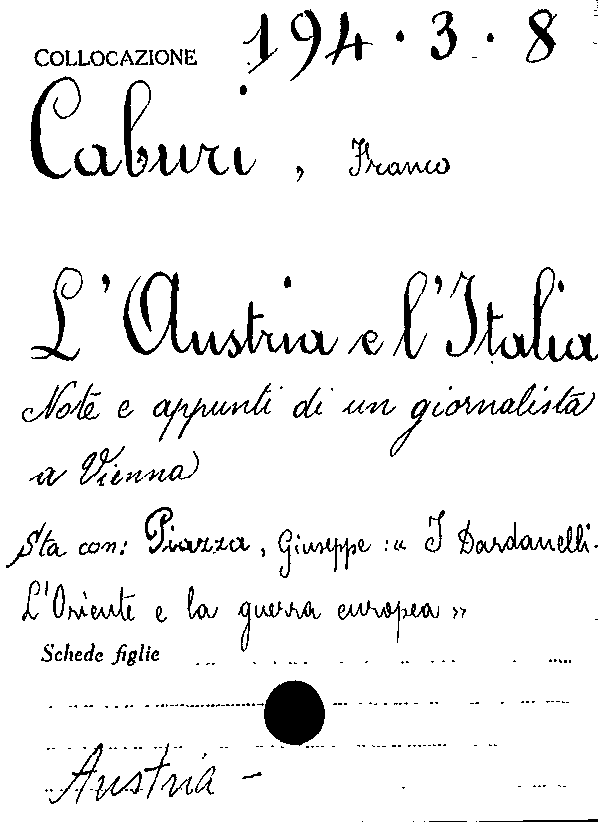 COLLOCAZIONE 194·3·8
Caburi, Franco
L'Austria e l'Italia
Note e appunti di un giornalista
a Vienna
Sta con: Piazza, Giuseppe: « I Dardanelli.
L'Oriente e la guerra europea »
Schede figlie
Austria -